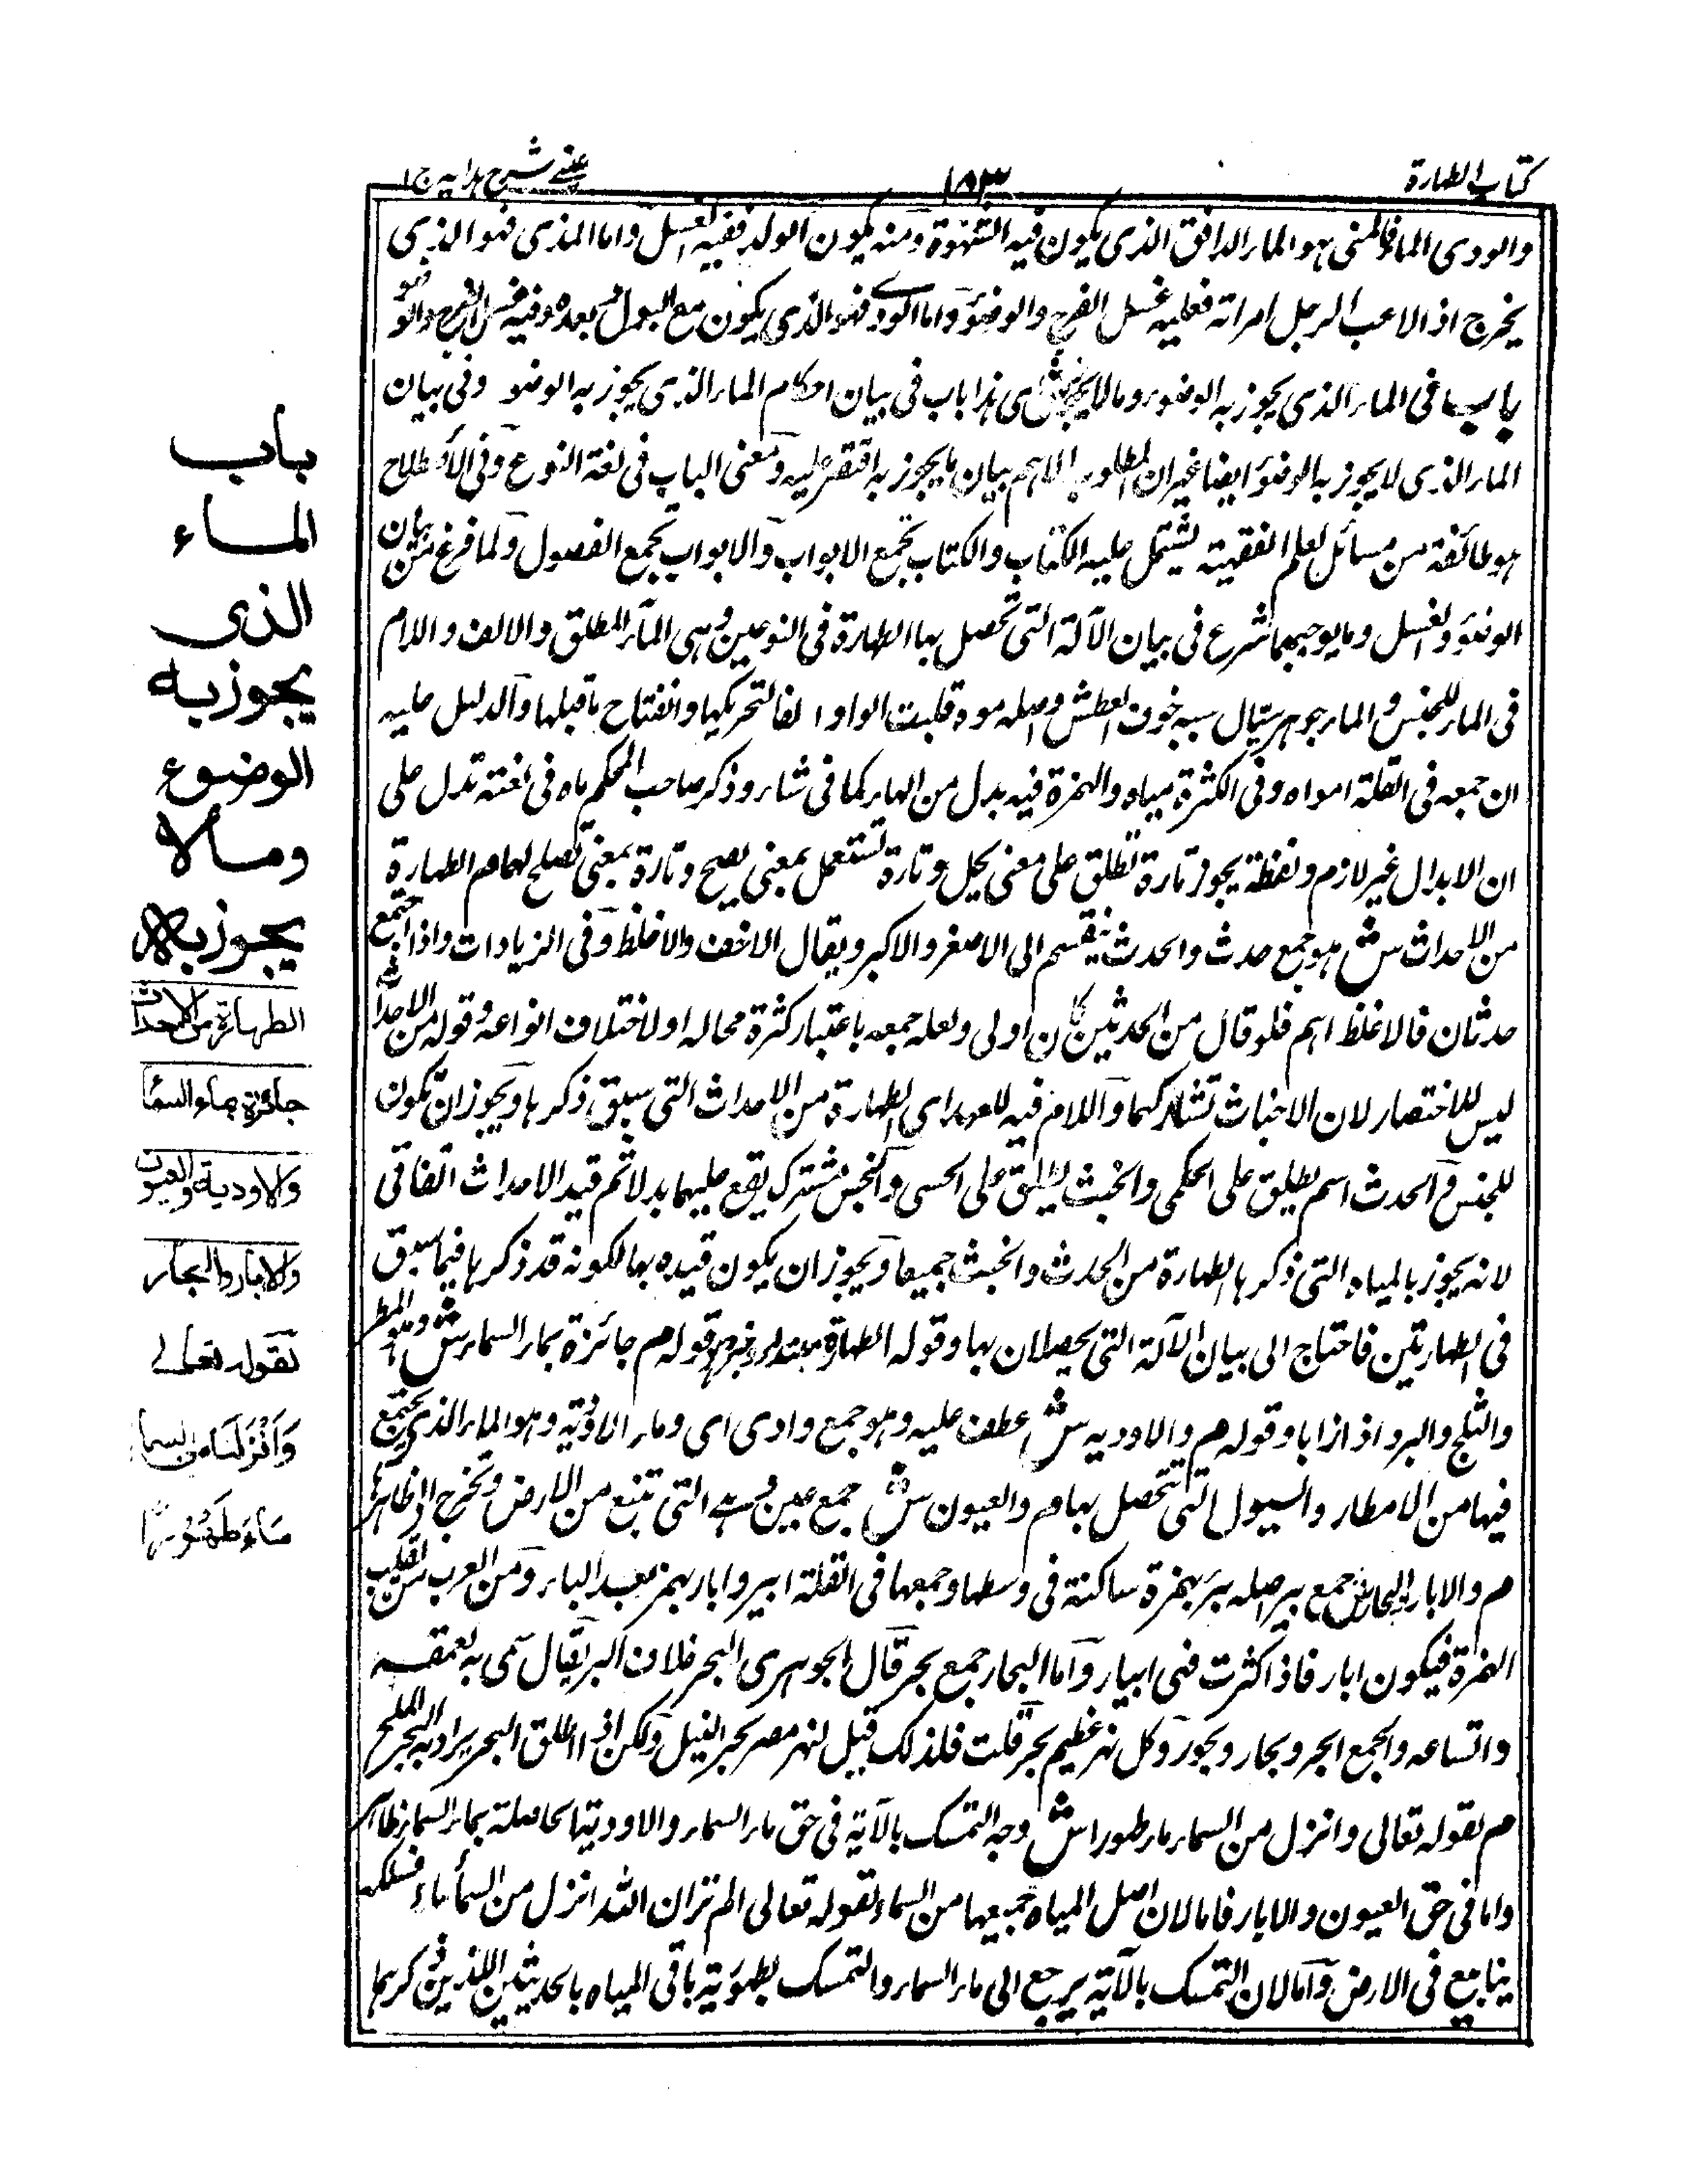 كتاب الطهارة
١٨٣
عینی شرح ہدایہ ج ١
والودى الماء فالمنى هو الماء الدافق الذى يكون فيه الشهوة ومنه يكون الولد ففيه الغسل واما المذى فهو الذى
يخرج اذا لاعب الرجل امراته فعليه غسل الفرج والوضوء واما الودى فهو الذى يكون مع البول وبعده وفيه غسل الفرج والوضوء
باب فى الماء الذى يجوز به الوضوء ومالا يجوز ش اى هذا باب فى بيان احكام الماء الذى يجوز به الوضوء وفى بيان
الماء الذى لا يجوز به الوضوء ايضا غير ان المطلوب الاهم بيان ما يجوز به اقتصر عليه ومعنى الباب فى لغة النوع وفى الاصطلاح
هو طائفة من مسائل لعلم الفقيهة يشتمل عليه الكتاب والكتاب تجمع الابواب والابواب تجمع الفصول ولما فرغ من بيان
الوضوء والغسل وما يوجبهما شرع فى بيان الآلة التى تحصل بها الطهارة فى النوعين وهى الماء المطلق والالف واللام
فى الماء للجنس والماء جوهر سيال سبه خوف العطش واصله موه قلبت الواو الفا لتحريكها وانفتاح ما قبلها والدليل عليه
ان جمعه فى القلة امواه وفى الكثرة مياه والهمزة فيه بدل من الهاء كما فى شاء وذكر صاحب المحكم ماه فى لغته تدل على
ان الابدال غير لازم ولفظة يجوز تارة تطلق على معنى يحل وتارة تستعمل بمعنى يصح وتارة بمعنى تصلح لهما م الطهارة
من الاحداث ش هو جمع حدث والحدث ينقسم الى الاصغر والاكبر ويقال الاخف والاغلظ وفى الزيادات واذا اجتمع
حدثان فالاغلظ اهم فلو قال من الحدثين كان اولى ولعله جمعه باعتبار كثرة محاله او لاختلاف انواعه وقوله من الاحداث
ليس للاختصار لان الاخباث تشاركها واللام فيه للعهد اى الطهارة من الاحداث التى سبق ذكرها ويجوز ان تكون
للجنس والحدث اسم يطلق على الحكمى والخبث يطلق على الحسى والنجس مشترك يقع عليهما بدلا ثم قيد الاحداث اتفاقى
لانه يجوز بالمياه التى ذكرها الطهارة من الحدث والخبث جميعا ويجوز ان يكون قيده بها لكونه قد ذكرها فيما سبق
فى الطهارتين فاحتاج الى بيان الآلة التى يحصلان بها وقوله الطهارة مبتدا وخبره قوله م جائزة بماء السماء ش وهو المطر
والثلج والبرد اذا ذابا وقوله م والاودية ش عطف عليه وهو جمع وادى اى وماء الاودية وهو الماء الذى يجتمع
فيها من الامطار والسيول التى تتحصل بها م والعيون ش جمع عين وهى التى تنبع من الارض وتخرج الى ظاهرها
م والابار والبحار ش جمع بير اصله بئر بهمزة ساكنة فى وسطها وجمعها فى القلة ابير وابار بهمز بعد الباء ومن العرب من يقلب
الهمزة فيكون ابار فاذا كثرت فهى ابيار واما البحار جمع بحر قال الجوهرى البحر خلاف البر يقال سمى به لعمقه
واتساعه والجمع ابحر وبحار وبحور وكل نهر عظيم بحر قلت فلذلك قيل لنهر مصر بحر النيل ولكن اذا اطلق البحر يراد به البحر الملح
م لقوله تعالى وانزل من السماء ماء طهورا ش وجه التمسك بالآية فى حق ماء السماء والاودية الحاصلة بماء السماء ظاهر
واما فى حق العيون والابار فاما لان اصل المياه جميعها من السماء لقوله تعالى الم تر ان الله انزل من السماء ماء فسلكه
ينابيع فى الارض واما لان التمسك بالآية يرجع الى ماء السماء والتمسك بطهورية باقى المياه بالحديثين اللذين ذكرهما
باب
الماء
الذى
يجوز به
الوضوء
ومالا
يجوز به
الطهارة من الاحداث
جائزة بماء السماء
والاودية والعيون
والابار والبحار
لقوله تعالى
وَاَنْزَلْنَا من السماء
مَاءً طَهُوْرًا